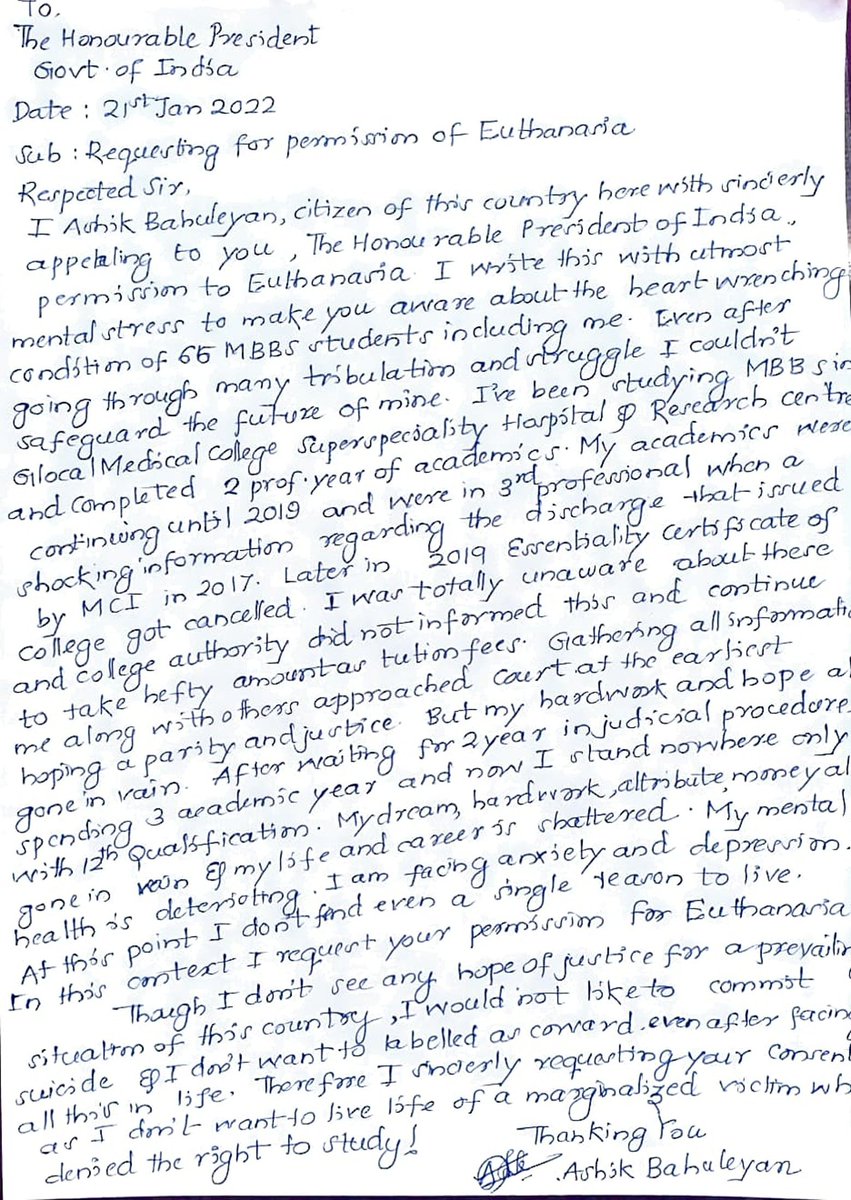 To,
The Honourable President
Govt. of India
Date : 21st Jan 2022
Sub : Requesting for permission of Euthanasia
Respected Sir,
I Ashik Bahuleyan, citizen of this country here with sincierly
appealing to you, The Honourable President of India.,
permission to Euthanasia. I write this with utmost
mental stress to make you aware about the heart wrenching
condition of 66 MBBS students including me. Even after
going through many tribulation and struggle I couldn't
safeguard the future of mine. I've been studying MBBS in
Glocal Medical College Superspeciality Hospital & Research centre
and completed 2 prof. year of academics. My academics were
continuing until 2019 and were in 3rd professional when a
shocking information regarding the discharge that issued
by MCI in 2017. Later in 2019 Essentiality certificate of
college got cancelled. I was totally unaware about these
and college authority did not informed this and continue
to take hefty amount as tution fees. Gathering all informati
me along with others approached court at the earliest
hoping a parity and justice. But my hardwork and hope al
gone in vain. After waiting for 2 year in judicial procedure,
spending 3 academic year and now I stand nowhere only
with 12th Qualification. My dream, hardwork, attribute, money al
gone in vain & my life and career is shattered. My mental
health is deterioting. I am facing anxiety and depression.
At this point I don't find even a single reason to live.
In this context I request your permission for Euthanasia
Though I don't see any hope of justice for a prevailin
situation of this country, I would not like to commit
suicide & I don't want to labelled as coward even after facing
all this in life. Therefore I sincierly requesting your consent
as I don't want to live life of a marginalized victim wh
denied the right to study!
Thanking You
Ashik Bahuleyan